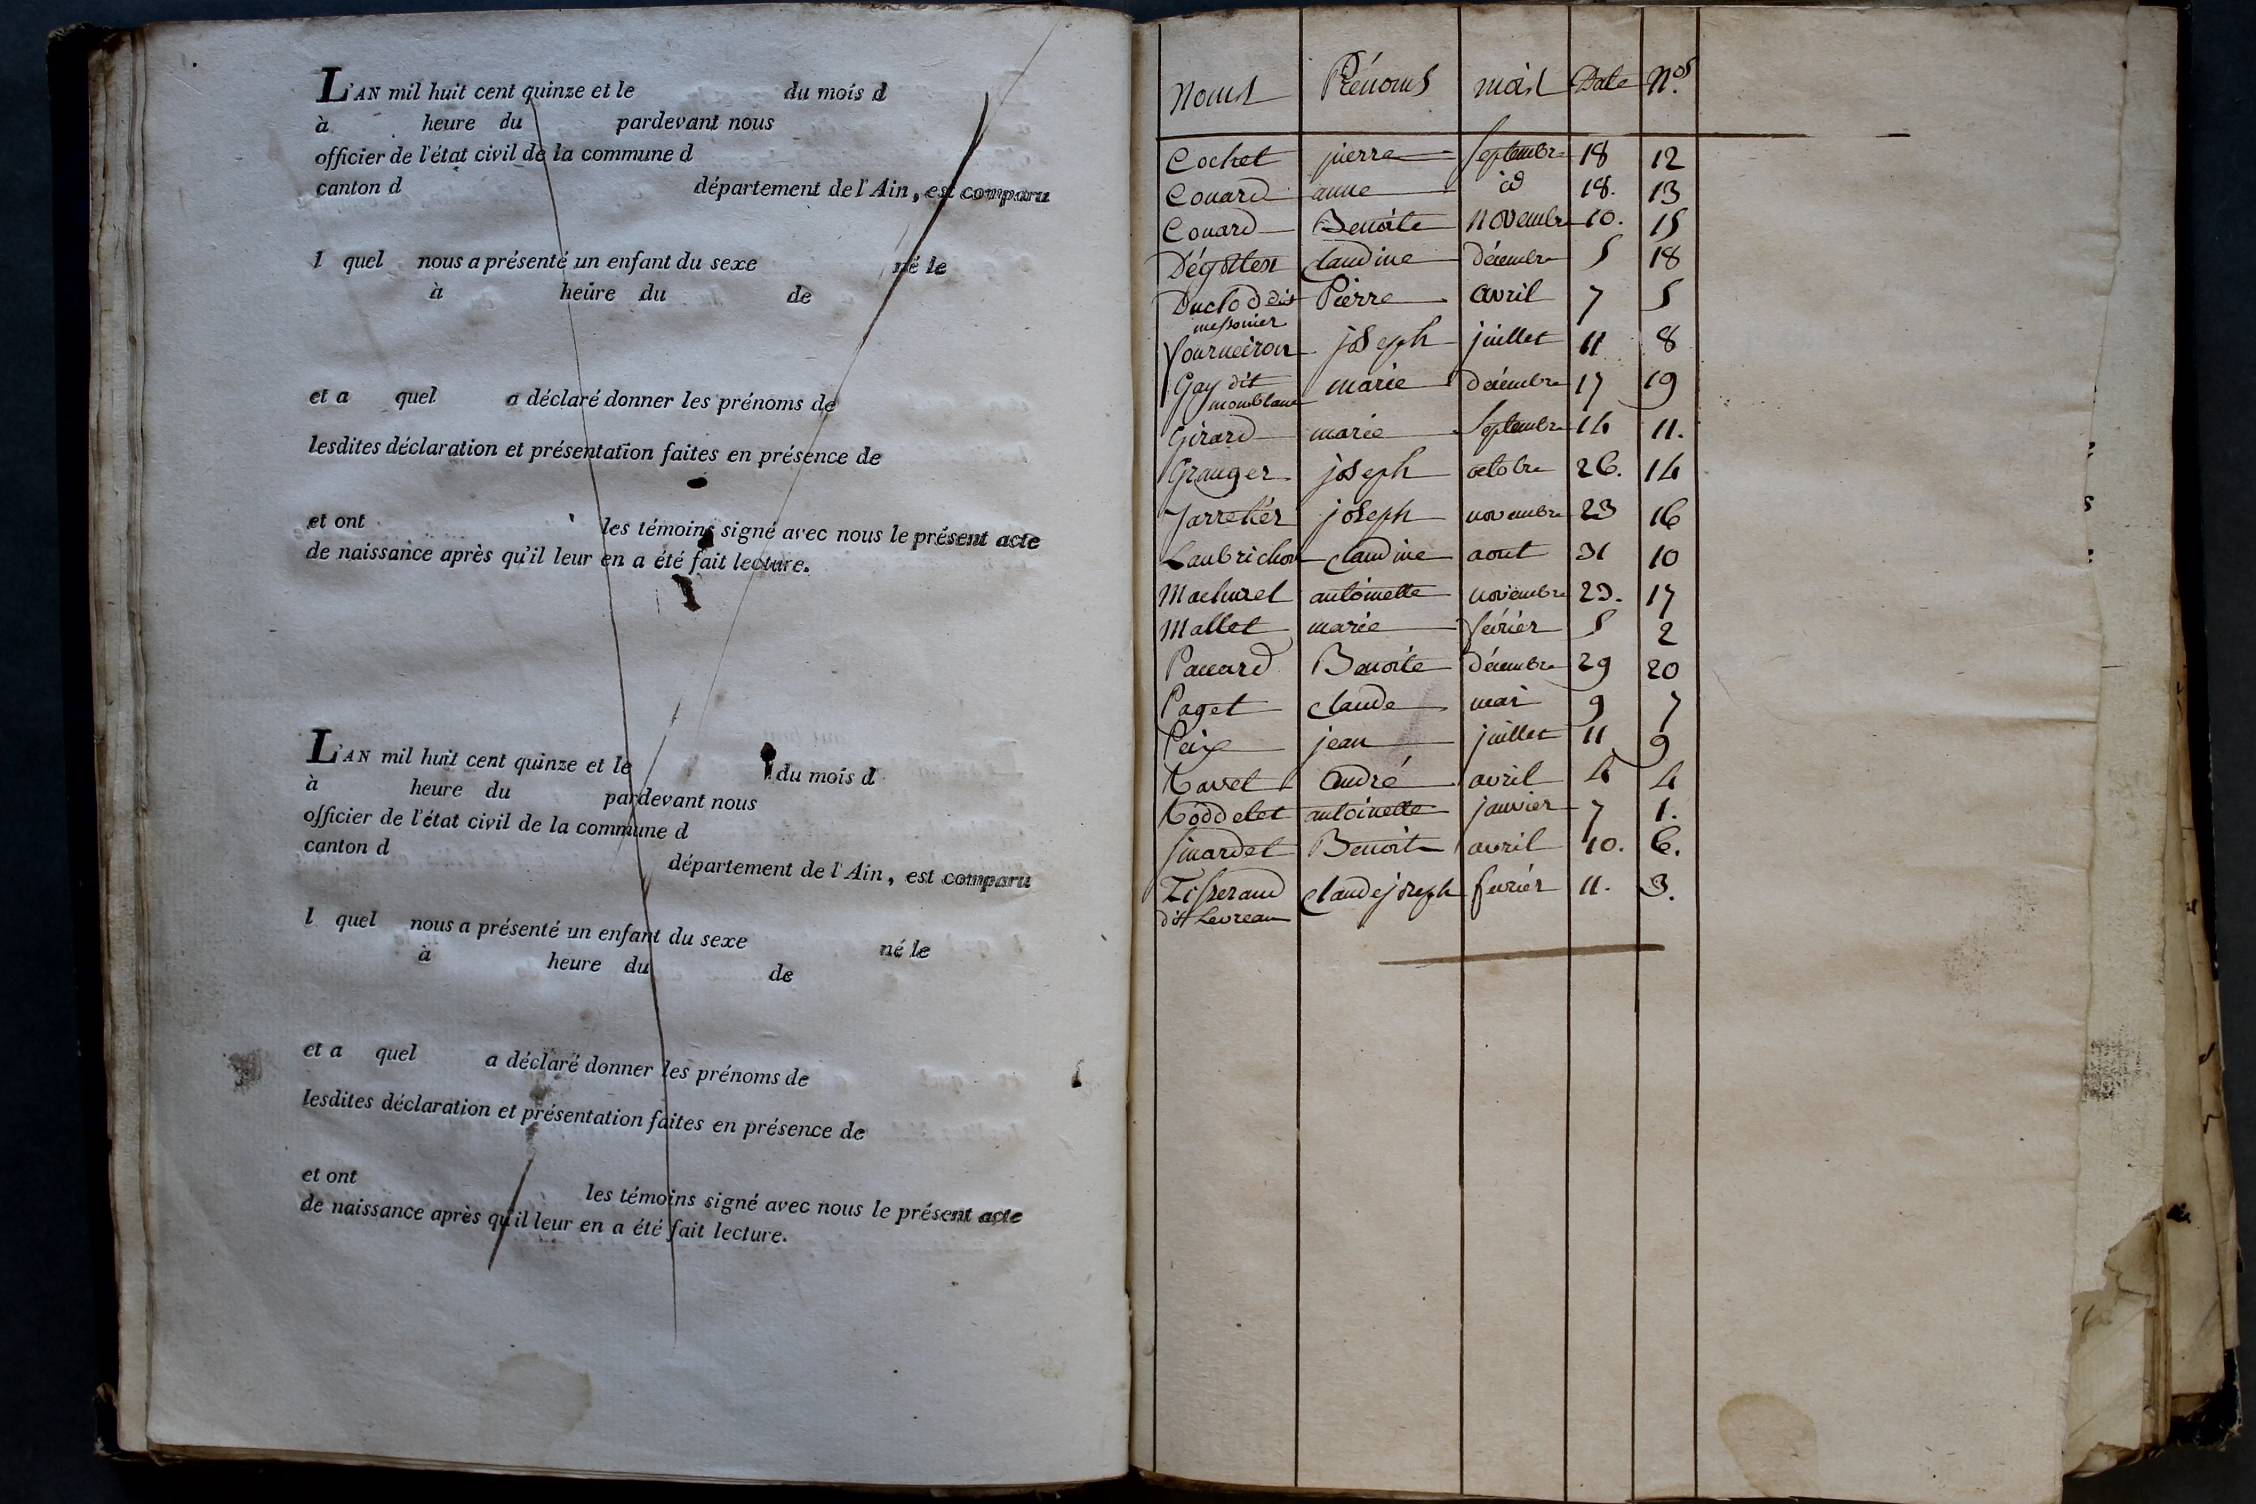 L'AN mil huit cent quinze et le du mois d
à heure du pardevant nous
officier de l'état civil de la commune d
canton d département de l'Ain, est comparu
l quel nous a présenté un enfant du sexe né le
à heure du de
et a quel a déclaré donner les prénoms de
lesdites déclaration et présentation faites en présence de
et ont les témoins signé avec nous le présent acte
de naissance après qu'il leur en a été fait lecture.
L'AN mil huit cent quinze et le du mois d
à heure du pardevant nous
officier de l'état civil de la commune d
canton d département de l'Ain, est comparu
l quel nous a présenté un enfant du sexe né le
à heure du de
et a quel a déclaré donner les prénoms de
lesdites déclaration et présentation faites en présence de
et ont les témoins signé avec nous le présent acte
de naissance après qu'il leur en a été fait lecture.
Noms Prénoms mois Date Nos
Cochet pierre Septembre 18 12
Couard anne id 18. 13
Couard Benoite Novembre 10. 15
claudine décembre 5 18
Duclod dit Pierre avril 7 5
messonier
Fourneiron joseph juillet 11 8
Gay dit marie décembre 17 19
monblanc
Girard marie Septembre 14 11.
Granger joseph octobre 26. 14
Jarrelier joseph novembre 23 16
Laubrichon claudine aout 31 10
Machurel antoinette novembre 23. 17
Mallet marie février 5 2
Benoite décembre 29 20
Paget claude mai 9 7
Peix jean juillet 11 9
Ravet andré avril 4 4
Roddelet antoinette janvier 7 1.
Sinardet Benoit avril 10. 6.
Tisserand claude joseph fevrier 11. 3.
dit Levreau